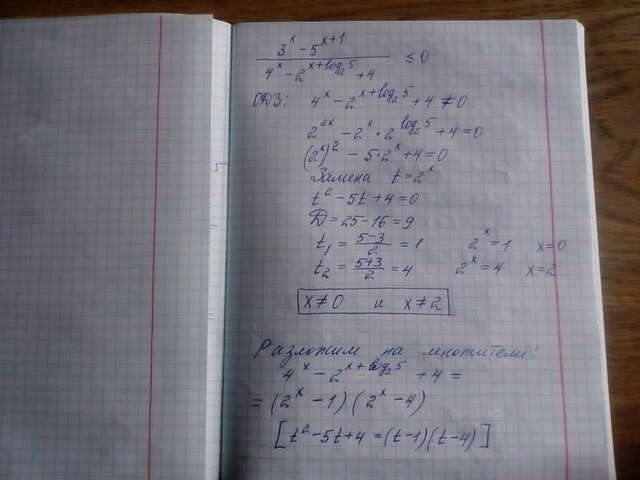 3^x - 5^{x+1}
4^x - 2^{x+log₂5} + 4 ≤ 0
ОДЗ: 4^x - 2^{x+log₂5} + 4 ≠ 0
2^{2x} - 2^x · 2^{log₂5} + 4 = 0
(2^x)² - 5·2^x + 4 = 0
Замена t = 2^x
t² - 5t + 4 = 0
D = 25 - 16 = 9
t₁ = (5-3)/2 = 1 2^x = 1 x = 0
t₂ = (5+3)/2 = 4 2^x = 4 x = 2
x ≠ 0 и x ≠ 2
Разложим на множители:
4^x - 2^{x+log₂5} + 4 =
= (2^x - 1)(2^x - 4)
[t² - 5t + 4 = (t-1)(t-4)]